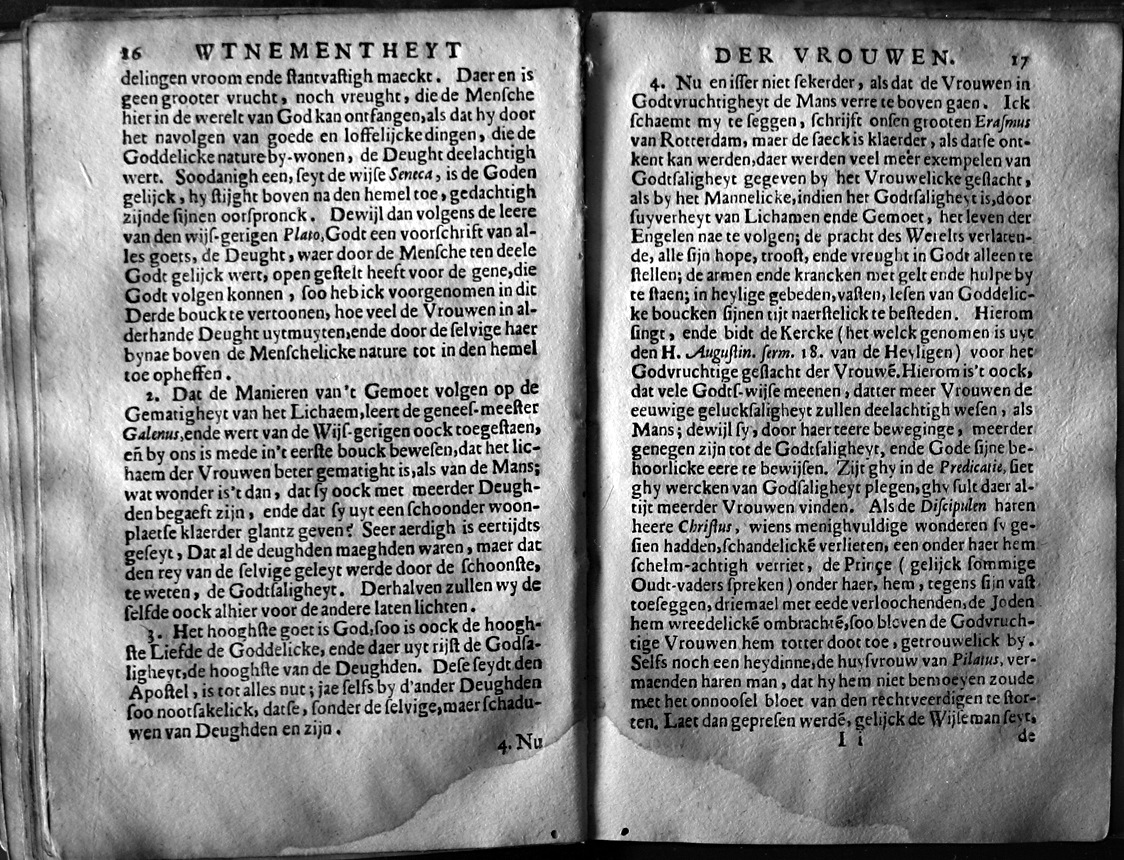 16 WTNEMENTHEYT
delingen vroom ende ſtantvaſtigh maeckt. Daer en is
geen grooter vrucht, noch vreught, die de Menſche
hier in de werelt van God kan ontfangen, als dat hy door
het navolgen van goede en loffelijcke dingen, die de
Goddelicke nature by-wonen, de Deught deelachtigh
wert. Soodanigh een, ſeyt de wijſe Seneca, is de Goden
gelijck, hy ſtijght boven na den hemel toe, gedachtigh
zijnde ſijnen oorſpronck. Dewijl dan volgens de leere
van den wijſ-gerigen Plato, Godt een voorſchrift van al-
les goets, de Deught, waer door de Menſche ten deele
Godt gelijck wert, open geſtelt heeft voor de gene, die
Godt volgen konnen, ſoo heb ick voorgenomen in dit
Derde bouck te vertoonen, hoe veel de Vrouwen in al-
derhande Deught uytmuyten, ende door de ſelvige haer
bynae boven de Menſchelicke nature tot in den hemel
toe opheffen.
2. Dat de Manieren van't Gemoet volgen op de
Gematigheyt van het Lichaem, leert de geneeſ-meeſter
Galenus, ende wert van de Wijſ-gerigen oock toegeſtaen,
eñ by ons is mede in't eerſte bouck beweſen, dat het lic-
haem der Vrouwen beter gematight is, als van de Mans;
wat wonder is't dan, dat ſy oock met meerder Deugh-
den begaeft zijn, ende dat ſy uyt een ſchoonder woon-
plaetſe klaerder glantz geven? Seer aerdigh is eertijdts
geſeyt, Dat al de deughden maeghden waren, maer dat
den rey van de ſelvige geleyt werde door de ſchoonſte,
te weten, de Godtſaligheyt. Derhalven zullen wy de
ſelfde oock alhier voor de andere laten lichten.
3. Het hooghſte goet is God, ſoo is oock de hoogh-
ſte Liefde de Goddelicke, ende daer uyt rijſt de Godſa-
ligheyt, de hooghſte van de Deughden. Deſe ſeydt den
Apoſtel, is tot alles nut; jae ſelfs by d'ander Deughden
ſoo nootſakelick, datſe, ſonder de ſelvige, maer ſchadu-
wen van Deughden en zijn.
4. Nu
DER VROUWEN. 17
4. Nu en iſſer niet ſekerder, als dat de Vrouwen in
Godtvruchtigheyt de Mans verre te boven gaen. Ick
ſchaemt my te ſeggen, ſchrijft onſen grooten Eraſmus
van Rotterdam, maer de ſaeck is klaerder, als datſe ont-
kent kan werden, daer werden veel meêr exempelen van
Godtſaligheyt gegeven by het Vrouwelicke geſlacht,
als by het Mannelicke, indien het Godtſaligheyt is, door
ſuyverheyt van Lichamen ende Gemoet, het leven der
Engelen nae te volgen; de pracht des Werelts verlaten-
de, alle ſijn hope, trooſt, ende vreught in Godt alleen te
ſtellen; de armen ende krancken met gelt ende hulpe by
te ſtaen; in heylige gebeden, vaſten, leſen van Goddelic-
ke boucken ſijnen tijt naerſtelick te beſteden. Hierom
ſingt, ende bidt de Kercke (het welck genomen is uyt
den H. Auguſtin. ſerm. 18. van de Heyligen) voor het
Godvruchtige geſlacht der Vrouwē. Hierom is't oock,
dat vele Godtſ-wijſe meenen, datter meer Vrouwen de
eeuwige geluckſaligheyt zullen deelachtigh weſen, als
Mans; dewijl ſy, door haer teere beweginge, meerder
genegen zijn tot de Godtſaligheyt, ende Gode ſijne be-
hoorlicke eere te bewijſen. Zijt ghy in de Predicatie, ſiet
ghy wercken van Godſaligheyt plegen, ghy ſult daer al-
tijt meerder Vrouwen vinden. Als de Diſcipulen haren
heere Chriſtus, wiens menighvuldige wonderen ſy ge-
ſien hadden, ſchandelickē verlieten, een onder haer hem
ſchelm-achtigh verriet, de Prinçe (gelijck ſommige
Oudt-vaders ſpreken) onder haer, hem, tegens ſijn vaſt
toeſeggen, driemael met eede verloochenden, de Joden
hem wreedelickē ombrachtē, ſoo bleven de Godvruch-
tige Vrouwen hem totter doot toe, getrouwelick by.
Selfs noch een heydinne, de huyſvrouw van Pilatus, ver-
maenden haren man, dat hy hem niet bemoeyen zoude
met het onnooſel bloet van den rechtveerdigen te ſtor-
ten. Laet dan gepreſen werdē, gelijck de Wijſeman ſeyt,
I i de